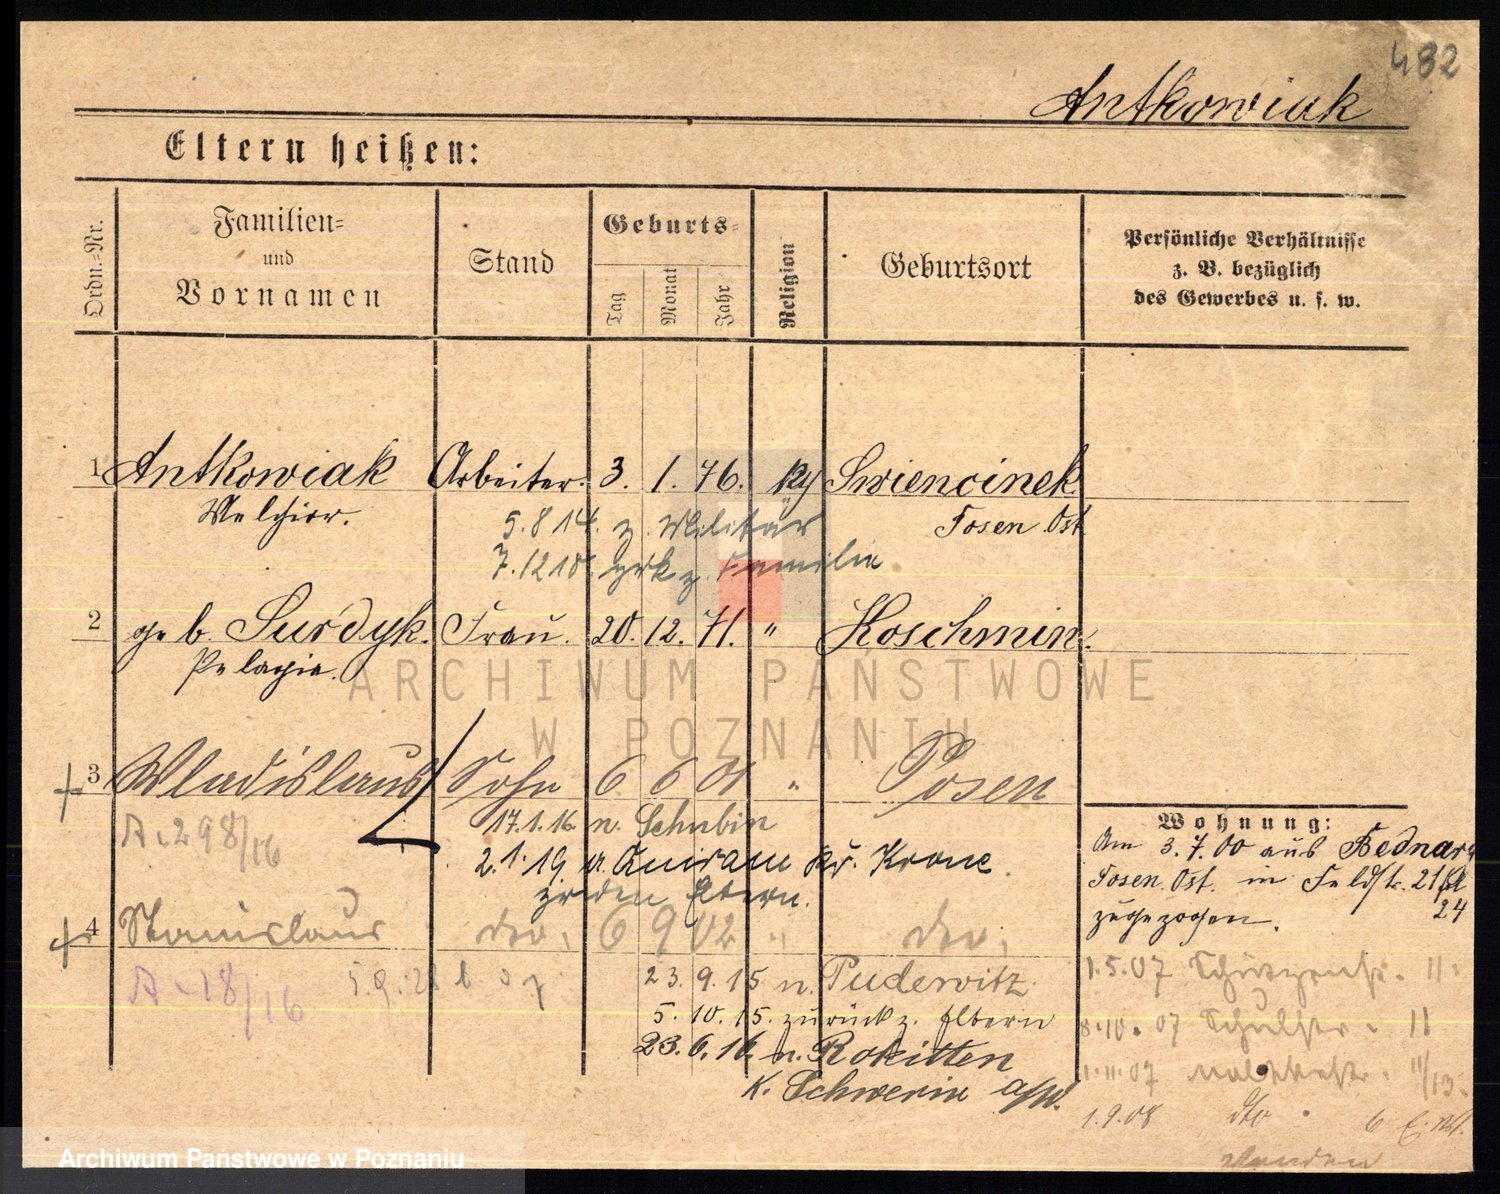 482
Antkowiak
Eltern heißen:
Ordn.-Nr.
Familien-
und
Vornamen
Stand
Geburts-
Tag
Monat
Jahr
Religion
Geburtsort
Persönliche Verhältnisse
z. B. bezüglich
des Gewerbes u. s. w.
1 Antkowiak Arbeiter. 3. 1. 76. Swiencinek
Melchior. 5.8 14. z. Militär Posen Ost
z. Familie
2 geb. Surdyk. Frau. 20. 12. 71. " Koschmin.
Pelagie.
ARCHIWUM PAŃSTWOWE
W POZNANIU
3 Wladislaus Sohn 6 6 01 " Posen
A. 298/16 17.1.16 n. Schubin
2.1.19 Kr. Krone
Eltern.
4 Stanislaus dto. 6 9 02 " dto.
A. 18/16
23. 9. 15 n. Pudewitz
5. 10. 15. zurück z. Eltern
23. 6. 16. n. Rokitten
K. Schwerin a/W.
Wohnung:
Am 3.7.00 aus Bednary
Posen. Ost. in Feldstr. 21
24
zugezogen.
1.5.07 11
8.10.07 11
1.11.07 11/13.
1.9.08 dto 6
Archiwum Państwowe w Poznaniu